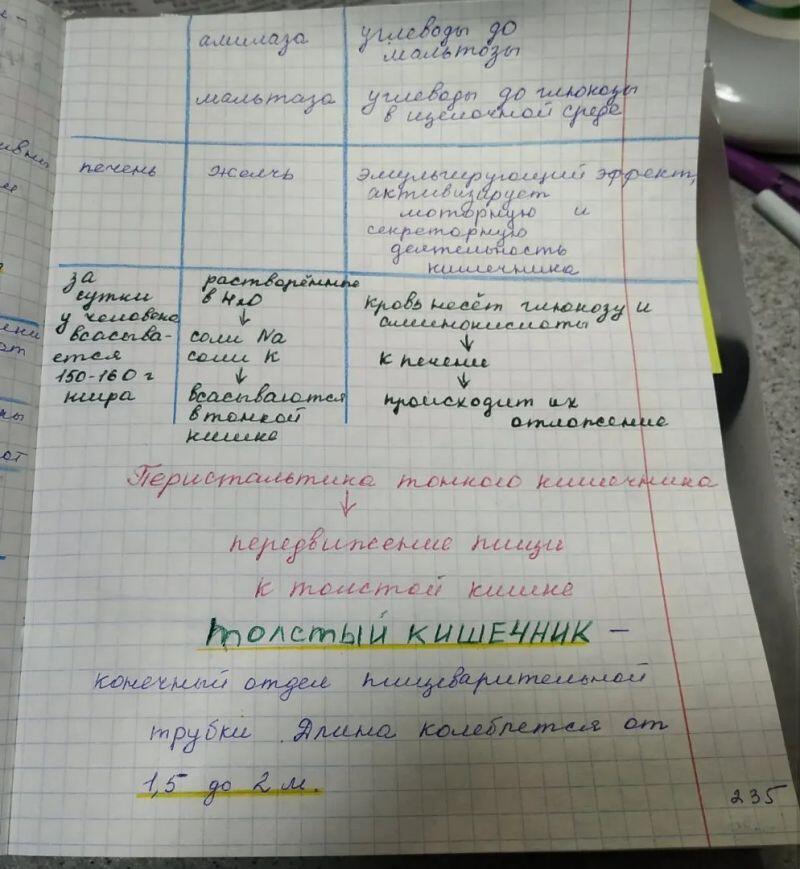 амилаза
углеводы до
мальтозы
мальтаза
углеводы до глюкозы
в щелочной среде
печень
желчь
эмульгирующий эффект,
активизирует
моторную и
секреторную
деятельность
кишечника
за
сутки
у человека
всасыва-
ется
150-160 г
жира
растворённые
в H₂O
↓
соли Na
соли K
↓
всасываются
в тонкой
кишке
кровь несёт глюкозу и
аминокислоты
↓
к печени
↓
происходит их
отложение
Перистальтика тонкого кишечника
↓
передвижение пищи
к толстой кишке
ТОЛСТЫЙ КИШЕЧНИК –
конечный отдел пищеварительной
трубки. Длина колеблется от
1,5 до 2 м.
235